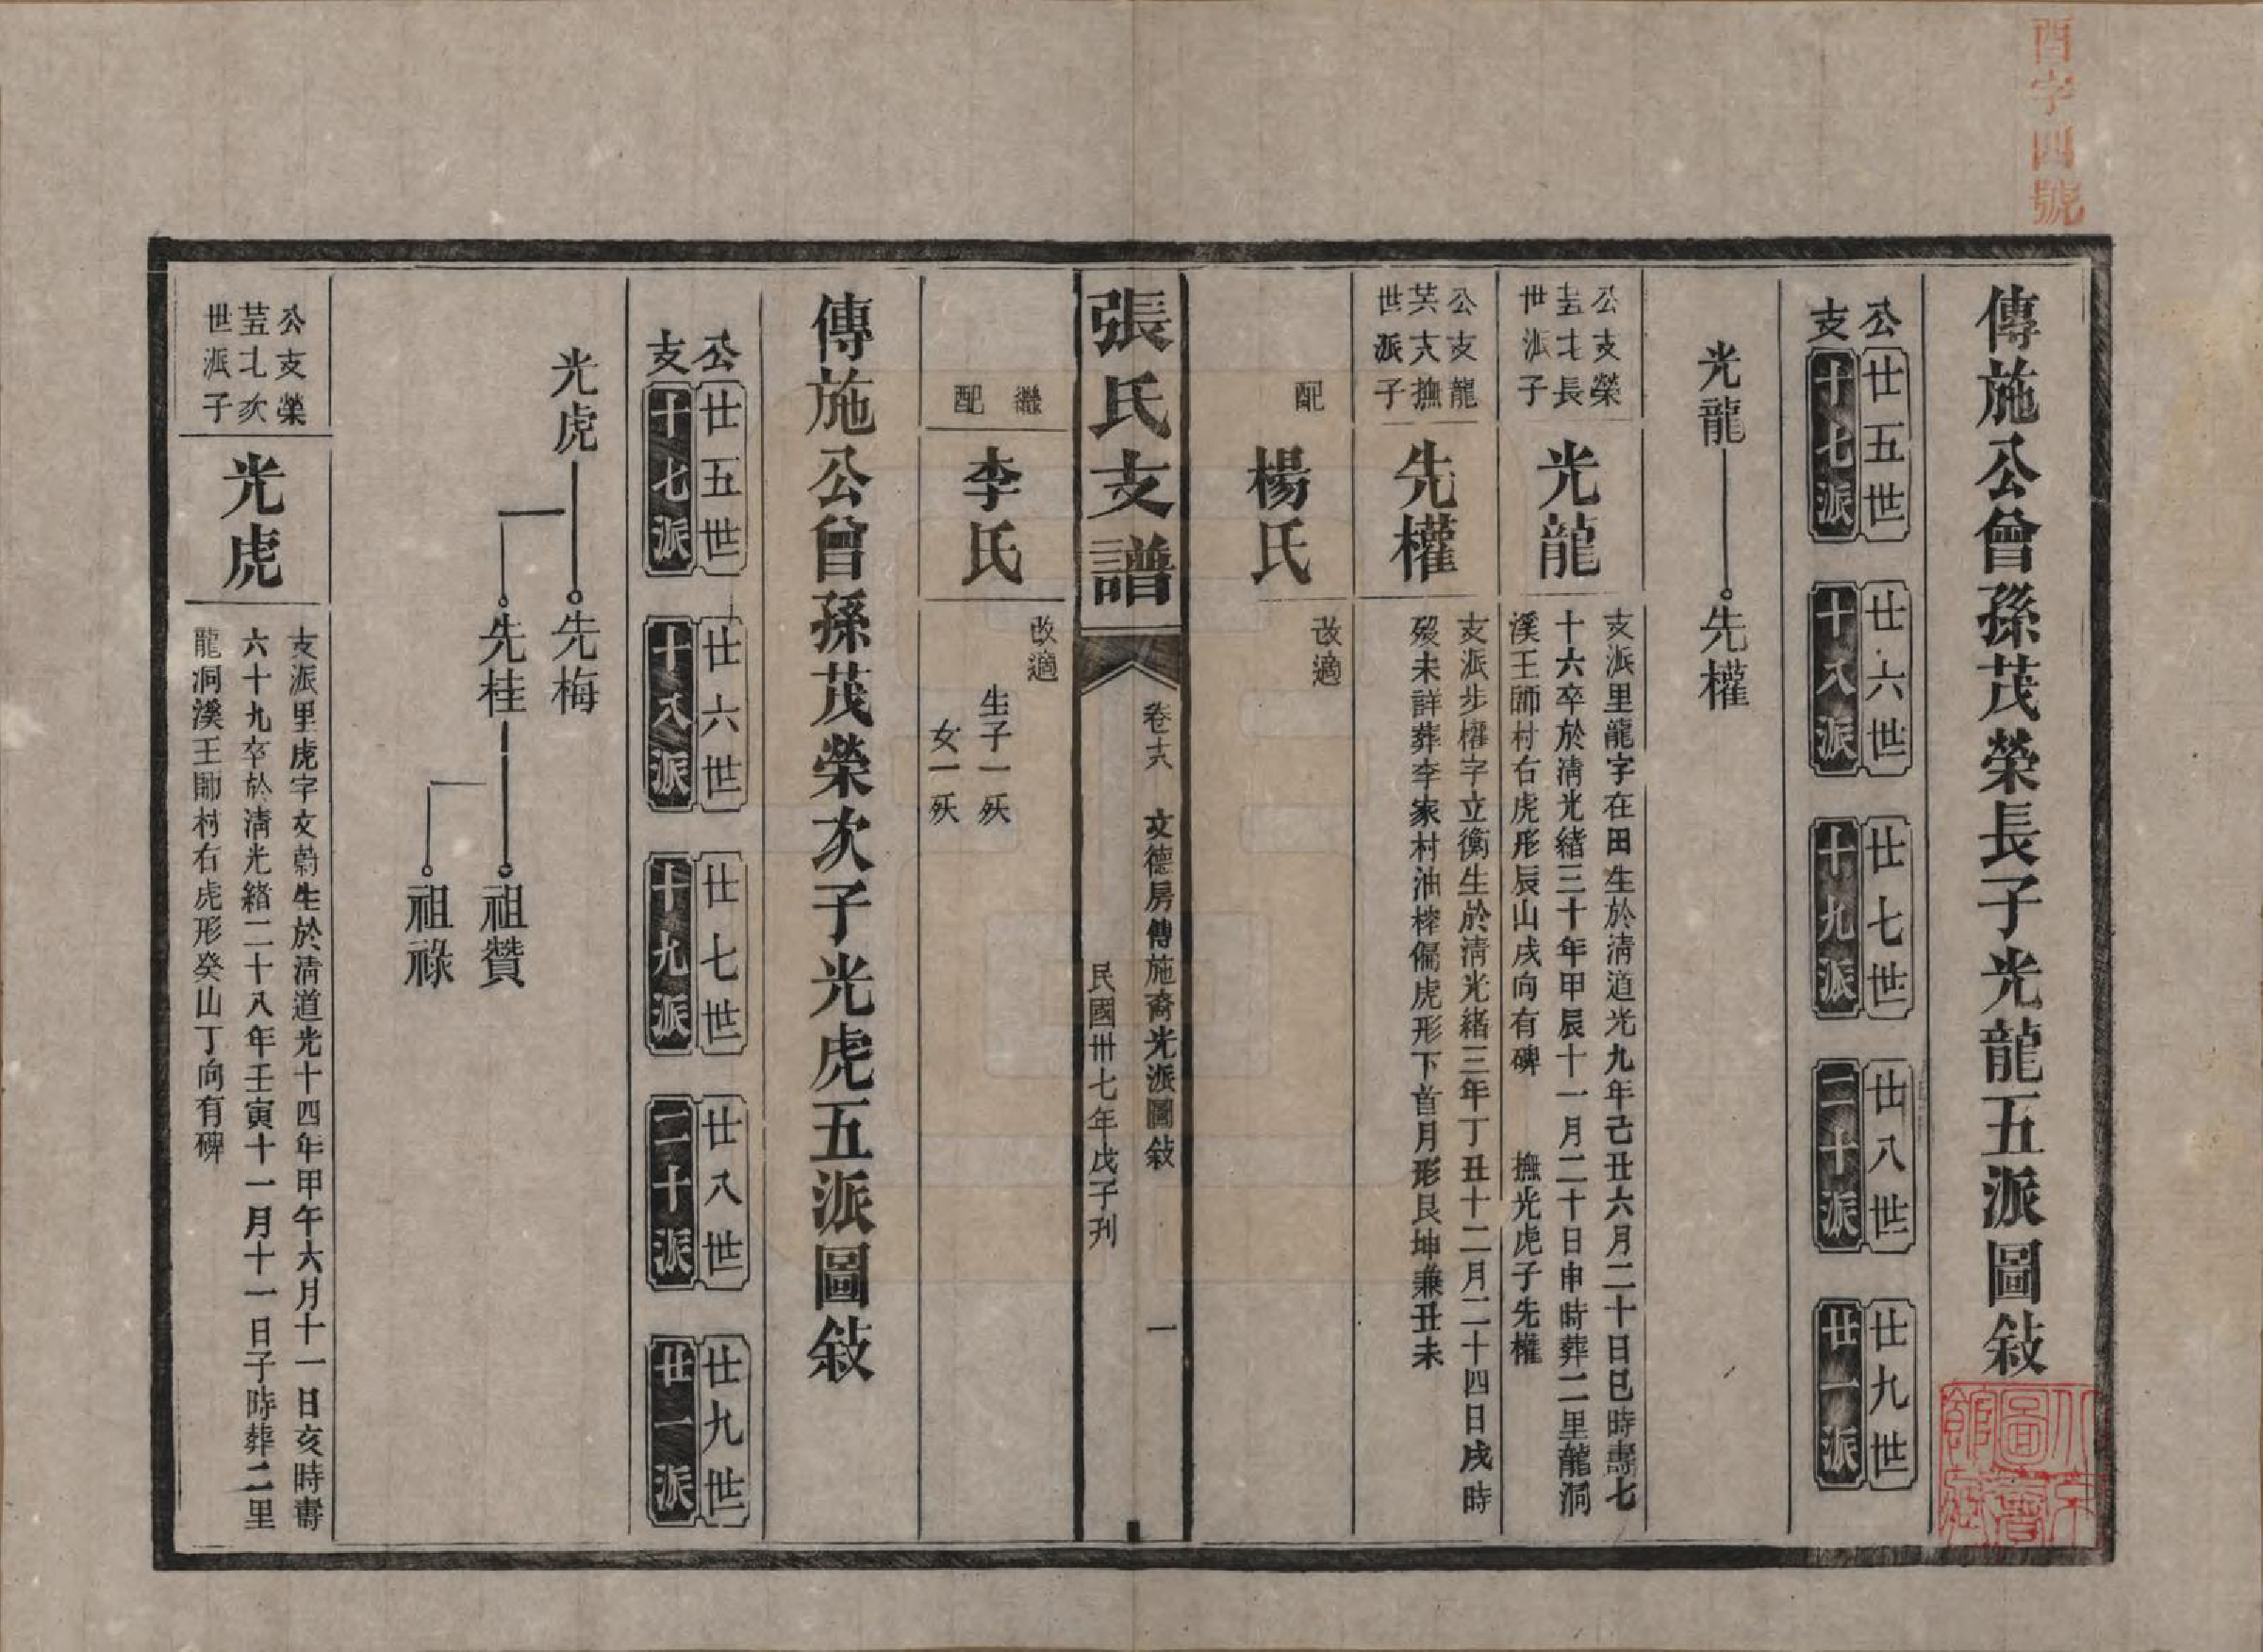 酉字四號
傳施公曾孫茂榮長子光龍五派圖敍
公支
廿五世 十七派
廿六世 十八派
廿七世 十九派
廿八世 二十派
廿九世 廿一派
光龍 先權
公支榮
廿五北長
世派子
光龍
支派里龍字在田生於清道光九年己丑六月二十日巳時壽七
十六卒於清光緒三十年甲辰十一月二十日申時葬二里龍洞
溪王師村右虎形辰山戌向有碑 撫光虎子先權
公支龍
廿六大撫
世派子
先權
支派步權字立衡生於清光緒三年丁丑十二月二十四日戌時
歿未詳葬李家村油榨偏虎形下首月形艮坤兼丑未
配
楊氏
改適
張氏支譜
卷十六 文德房傳施裔光派圖敍 一
民國卅七年戊子刊
繼
配
李氏
改適
生子一殀
女一殀
傳施公曾孫茂榮次子光虎五派圖敍
公支
廿五世 十七派
廿六世 十八派
廿七世 十九派
廿八世 二十派
廿九世 廿一派
光虎 先梅
先桂 祖贊
祖祿
公支榮
廿五北次
世派子
光虎
支派里虎字文蔚生於清道光十四年甲午六月十一日亥時壽
六十九卒於清光緒二十八年壬寅十一月十一日子時葬二里
龍洞溪王師村右虎形癸山丁向有碑